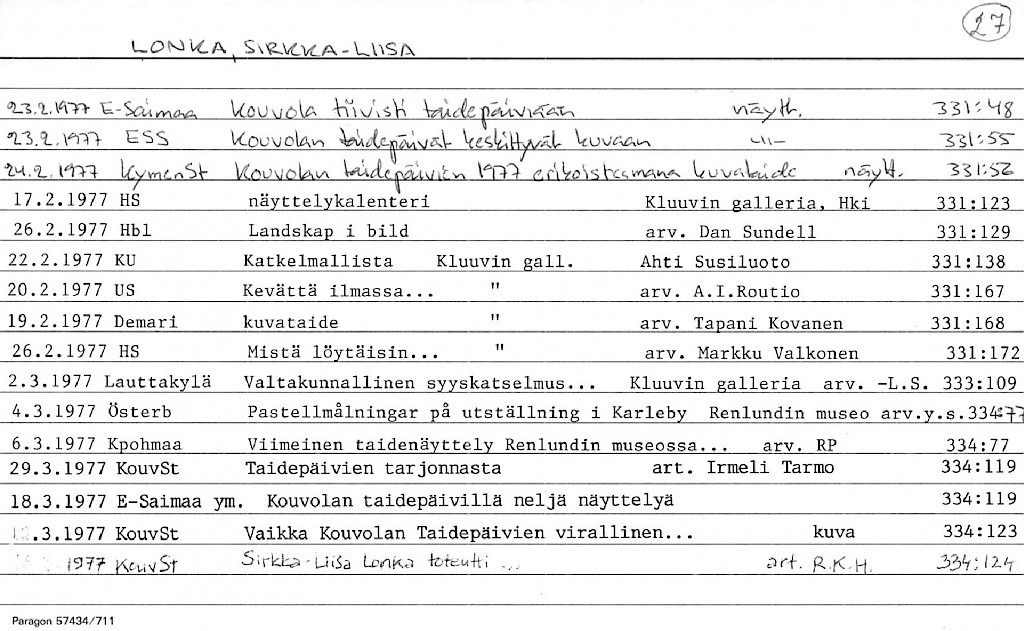 27
LONKA, SIRKKA-LIISA
23.2.1977 E-Saimaa Kouvola tiivisti taidepäiviään näytt. 331:48
23.2.1977 ESS Kouvolan taidepäivät keskittyvät kuvaan -"- 331:55
24.2.1977 KymenSt Kouvolan taidepäivien 1977 erikoisteemana kuvataide näytt. 331:56
17.2.1977 HS näyttelykalenteri Kluuvin galleria, Hki 331:123
26.2.1977 Hbl Landskap i bild arv. Dan Sundell 331:129
22.2.1977 KU Katkelmallista Kluuvin gall. Ahti Susiluoto 331:138
20.2.1977 US Kevättä ilmassa... " arv. A.I.Routio 331:167
19.2.1977 Demari kuvataide " arv. Tapani Kovanen 331:168
26.2.1977 HS Mistä löytäisin... " arv. Markku Valkonen 331:172
2.3.1977 Lauttakylä Valtakunnallinen syyskatselmus... Kluuvin galleria arv. -L.S. 333:109
4.3.1977 Österb Pastellmålningar på utställning i Karleby Renlundin museo arv.y.s.334:77
6.3.1977 Kpohmaa Viimeinen taidenäyttely Renlundin museossa... arv. RP 334:77
29.3.1977 KouvSt Taidepäivien tarjonnasta art. Irmeli Tarmo 334:119
18.3.1977 E-Saimaa ym. Kouvolan taidepäivillä neljä näyttelyä 334:119
.3.1977 KouvSt Vaikka Kouvolan Taidepäivien virallinen... kuva 334:123
1977 KouvSt Sirkka-Liisa Lonka toteutti ... art. R.K.H. 334:124
Paragon 57434/711